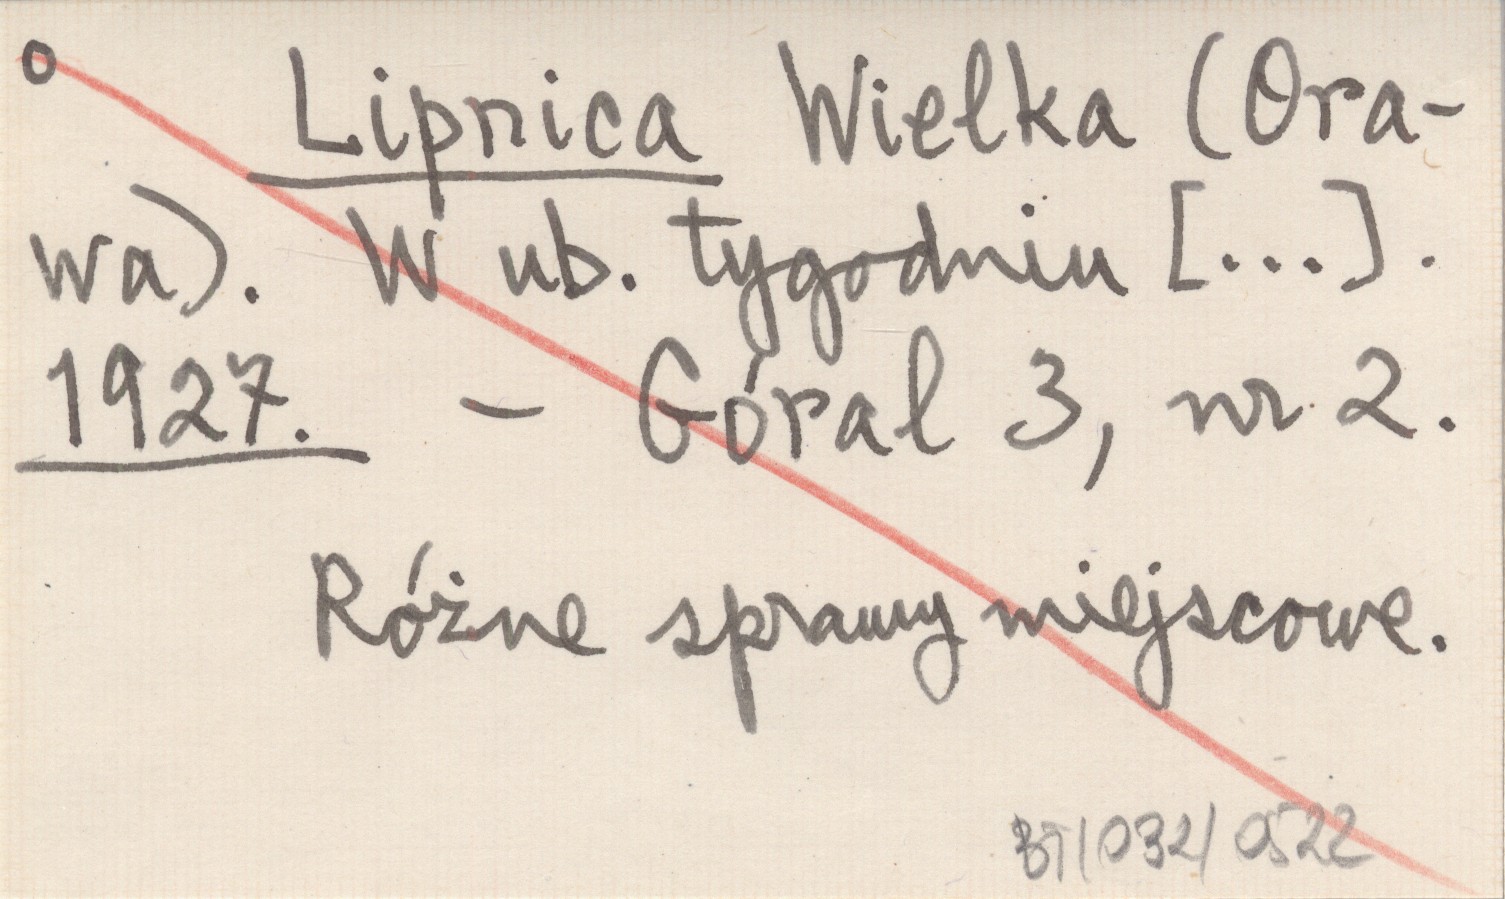 o Lipnica Wielka (Ora-
wa). W ub. tygodniu [...].
1927. - Góral 3, nr 2.
Różne sprawy miejscowe.
BT/032/0522